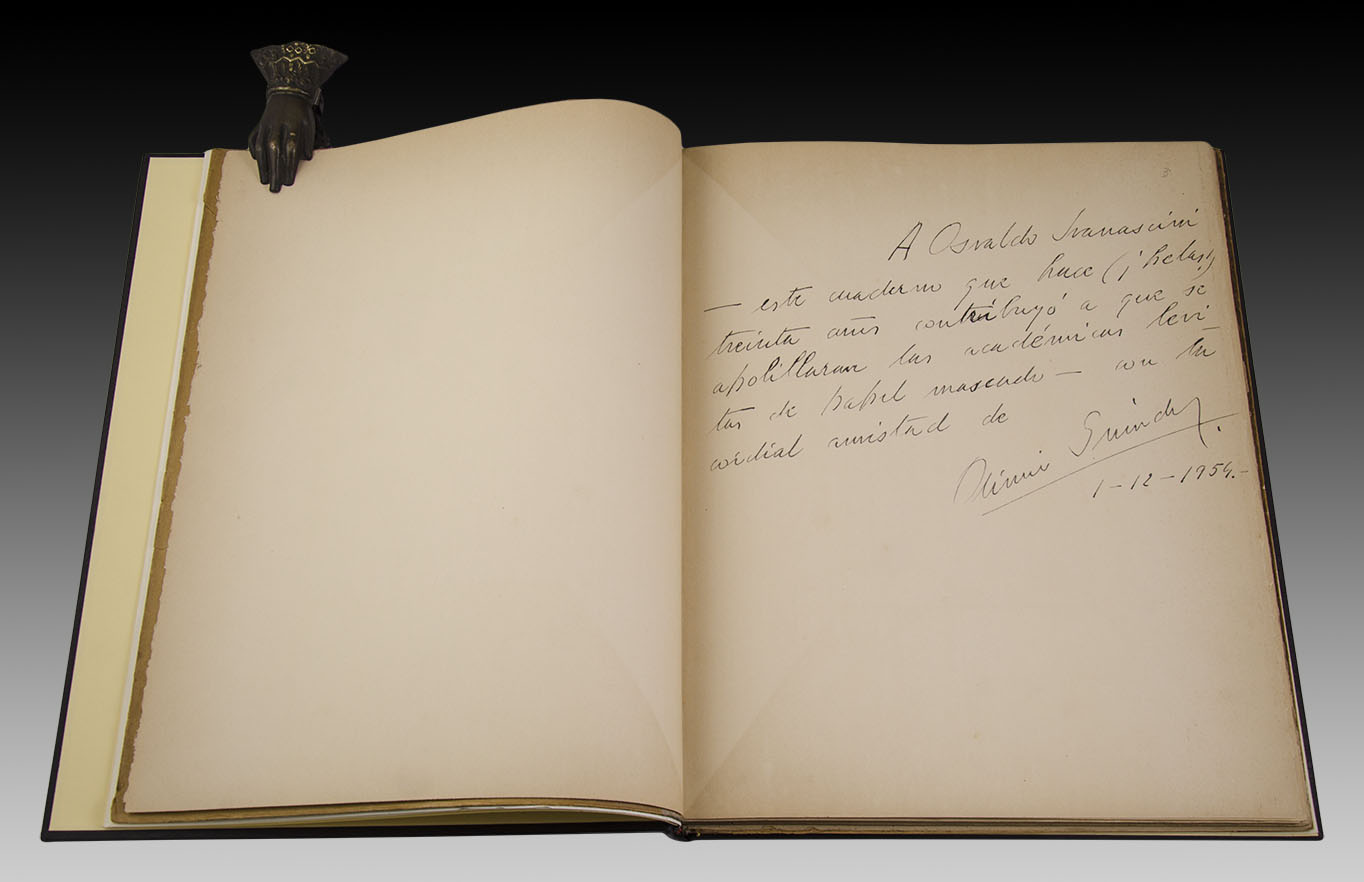 3
A Osvaldo Svanascini
— este cuaderno que hace (¡helas!)
treinta años contribuyó a que se
apolillaran las académicas levi
tas de papel mascado — con la
cordial amistad de
Oliverio Girondo.
1-12-1954.-